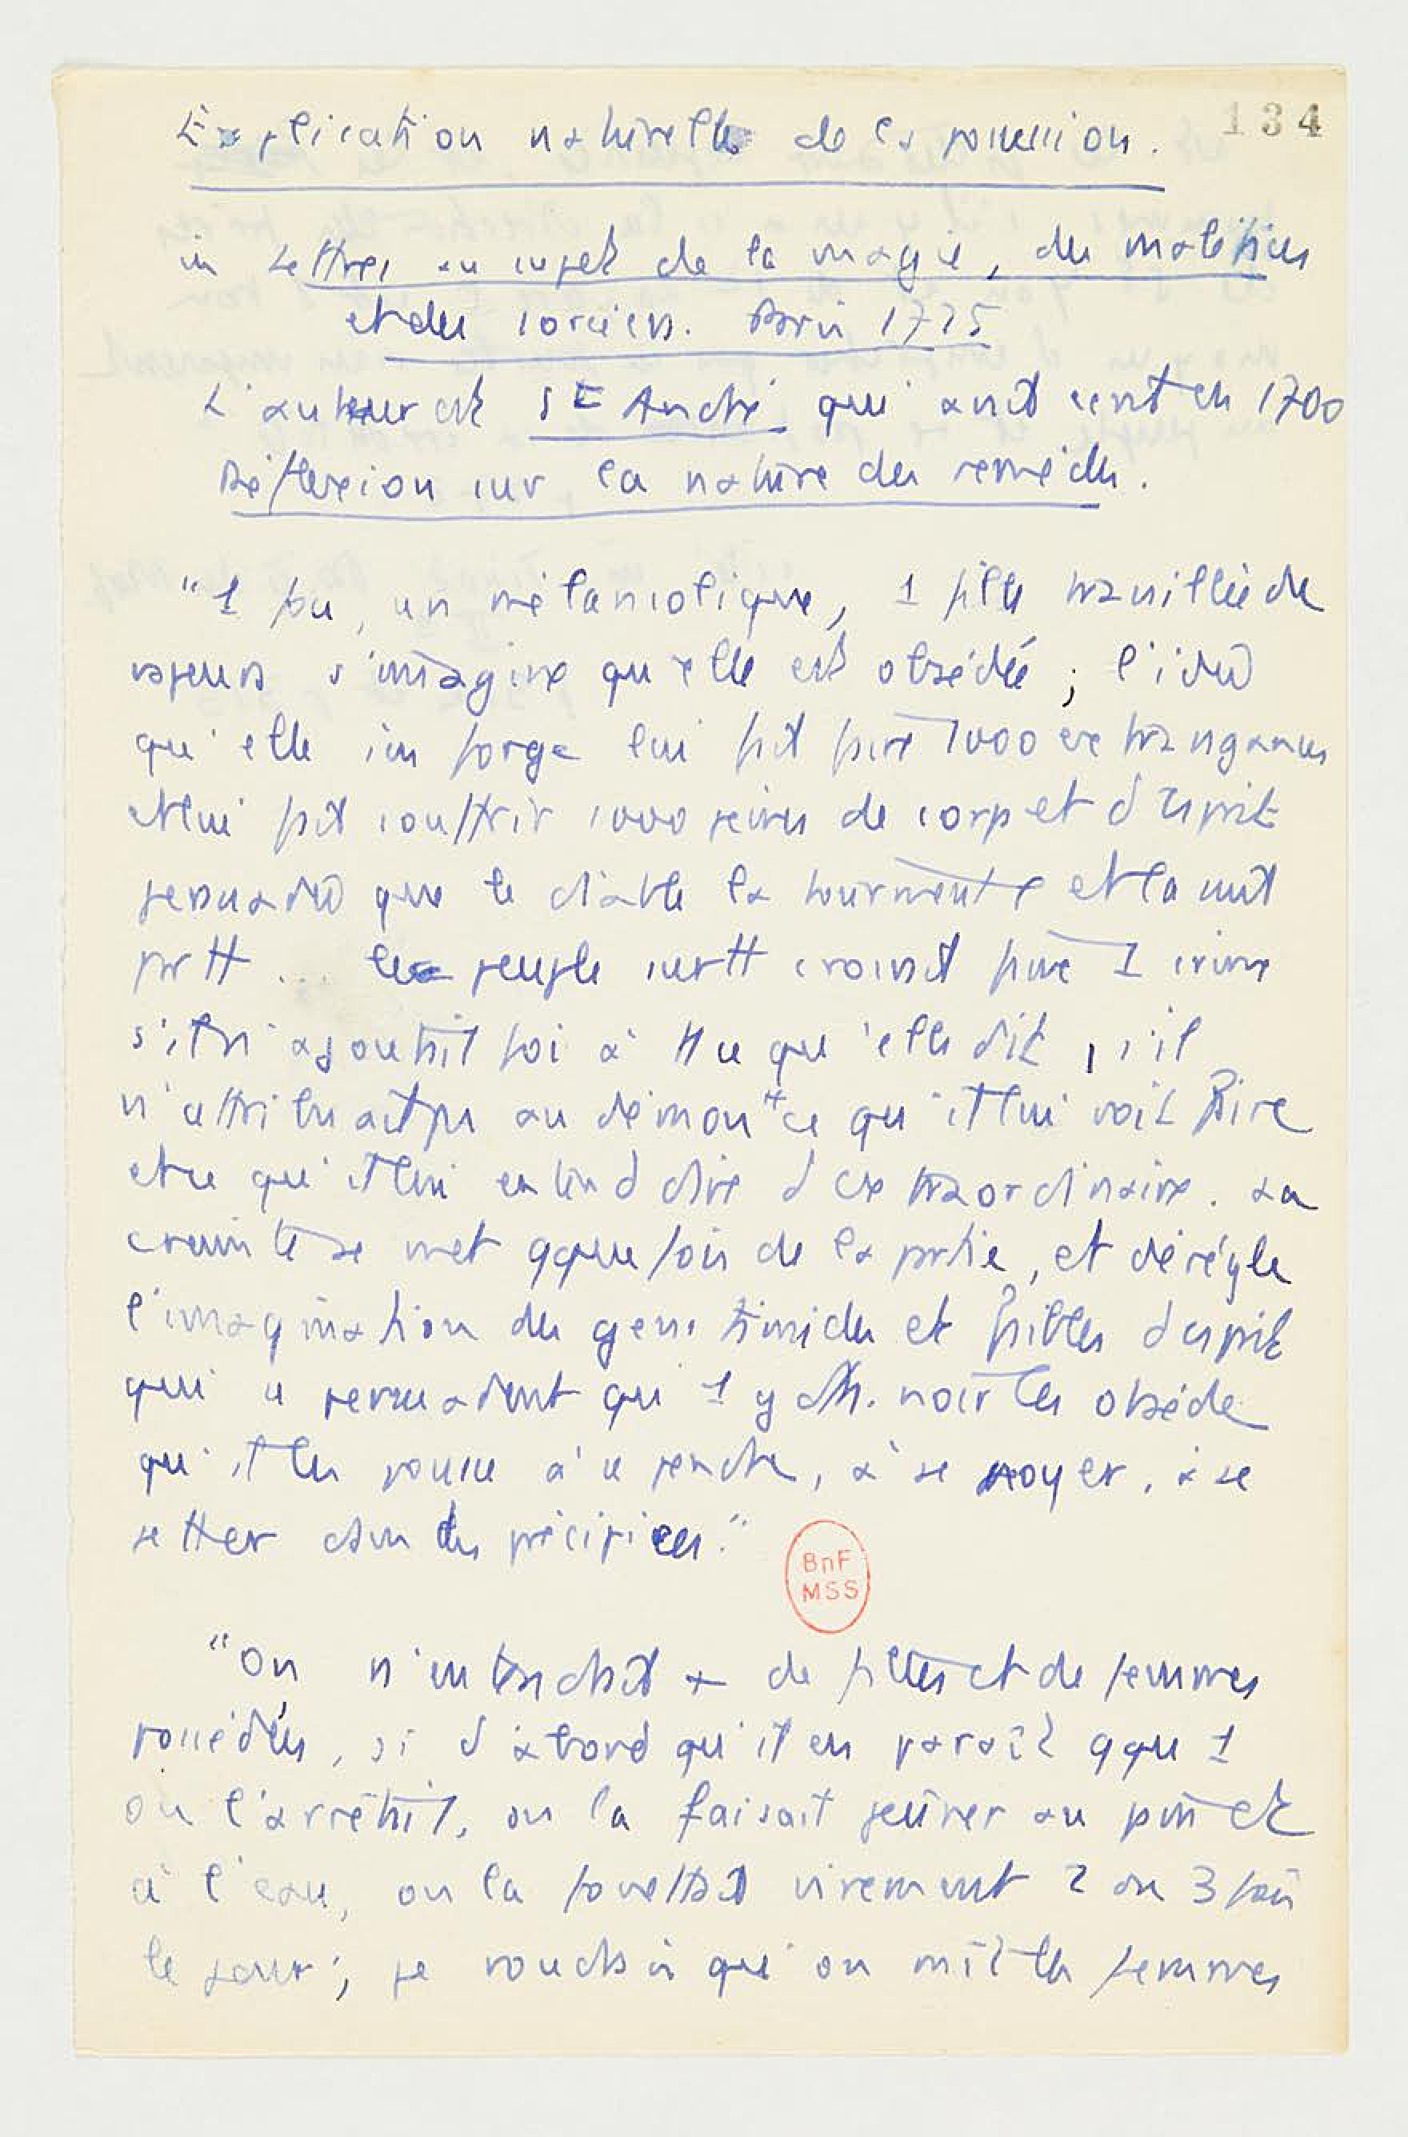 134
Explication naturelle de la possession.
in Lettres au sujet de la magie, des maléfices
et des sorciers. Paris 1725
L'auteur est St André qui avait écrit en 1700
Réflexion sur la nature des remèdes.
"1 fou, un mélancolique, 1 fille travaillée de
vapeurs s'imagine qu'elle est obsédée ; l'idée
qu'elle s'en forge lui fait faire 1000 extravagances
et lui fait souffrir 1000 peines de corps et d'esprit
persuadée que le diable la tourmente et la suit
partt ... le peuple surtt croirait faire 1 crime
s'il n'ajoutait foi à tt ce qu'elle dit, s'il
n'attribuait pas au démon tt ce qu'il lui voit faire
et ce qu'il lui entend dire d'extraordinaire. La
crainte se met qque fois de la partie, et dérègle
l'imagination des gens timides et faibles d'esprit
qui se persuadent qu'1 noir les obsède
qu'il les pousse à se pendre, à se noyer, à se
jetter dans des précipices."
BnF
MSS
"On n'entendrait + de filles et de femmes
possédées, si d'abord qu'il en paraît qqu 1
on l'arrêtait, on la faisait jeûner au pain et
à l'eau, on la fouettait vivement 2 ou 3 fois
le jour ; je voudrais qu'on mît les femmes